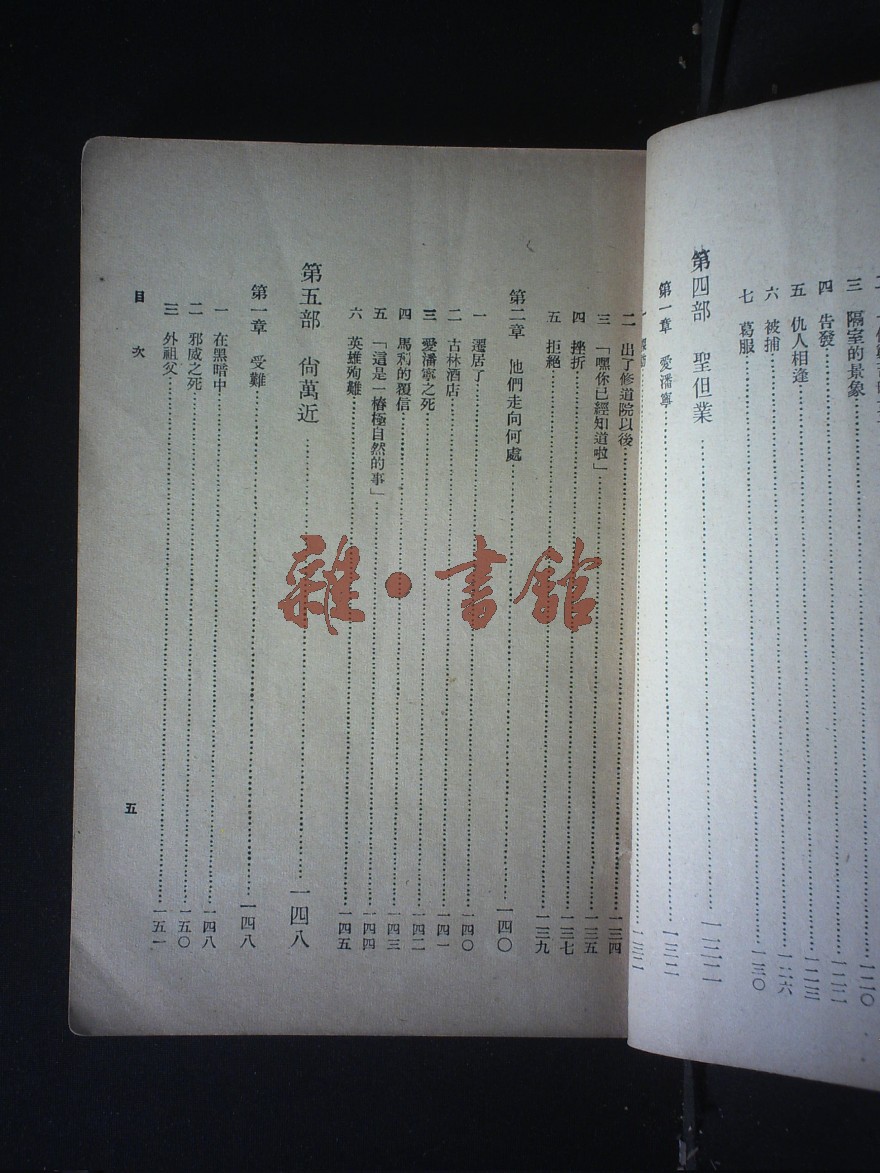 三 隔室的景象 一二〇
四 告發 一二二
五 仇人相逢 一二三
六 被捕 一二六
七 葛服 一三〇
第四部 聖但業 一三二
第一章 愛潘寧 一三二
二 出了修道院以後 一三四
三 「嘿你已經知道啦」 一三五
四 挫折 一三七
五 拒絕 一三九
第二章 他們走向何處 一四〇
一 遷居了 一四〇
二 古林酒店 一四一
三 愛潘寧之死 一四二
四 馬利的覆信 一四三
五 「這是一樁極自然的事」 一四四
六 英雄殉難 一四五
第五部 尙萬近 一四八
第一章 受難 一四八
一 在黑暗中 一四八
二 邪威之死 一五〇
三 外祖父 一五一
目次
五
雜·書館